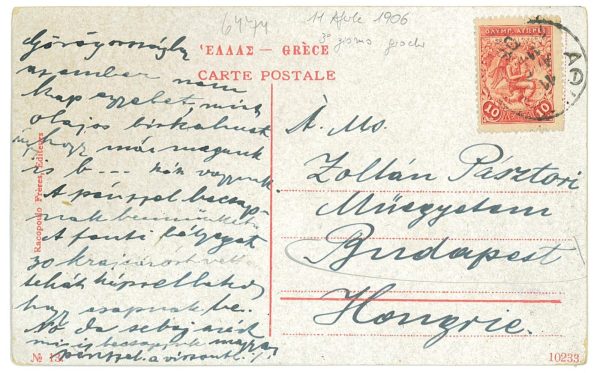 6474
11 Aprile 1906
3° giorno giochi
ἙΛΛΑΣ — GRÈCE
CARTE POSTALE
ΟΛΥΜΠ. ΑΓΩΝΕΣ
10 10
Görögországban
az ember nem
kap egyebet, mint
olajos birkahúst
úgy hogy már magunk
is b... kák vagyunk.
A pénzzel becsap-
nak bennünket.
A fenti bélyeget
30 krajcárért
tehát képzelheted
hogy csapnak be.
No de sebaj azért
mi is becsapjuk magyar
pénzzel a viszont
Racopoulo Frères Editeurs
À Ms.
Zoltán Pásztori
Müegyetem
Budapest
Hongrie.
№ 13.
10233